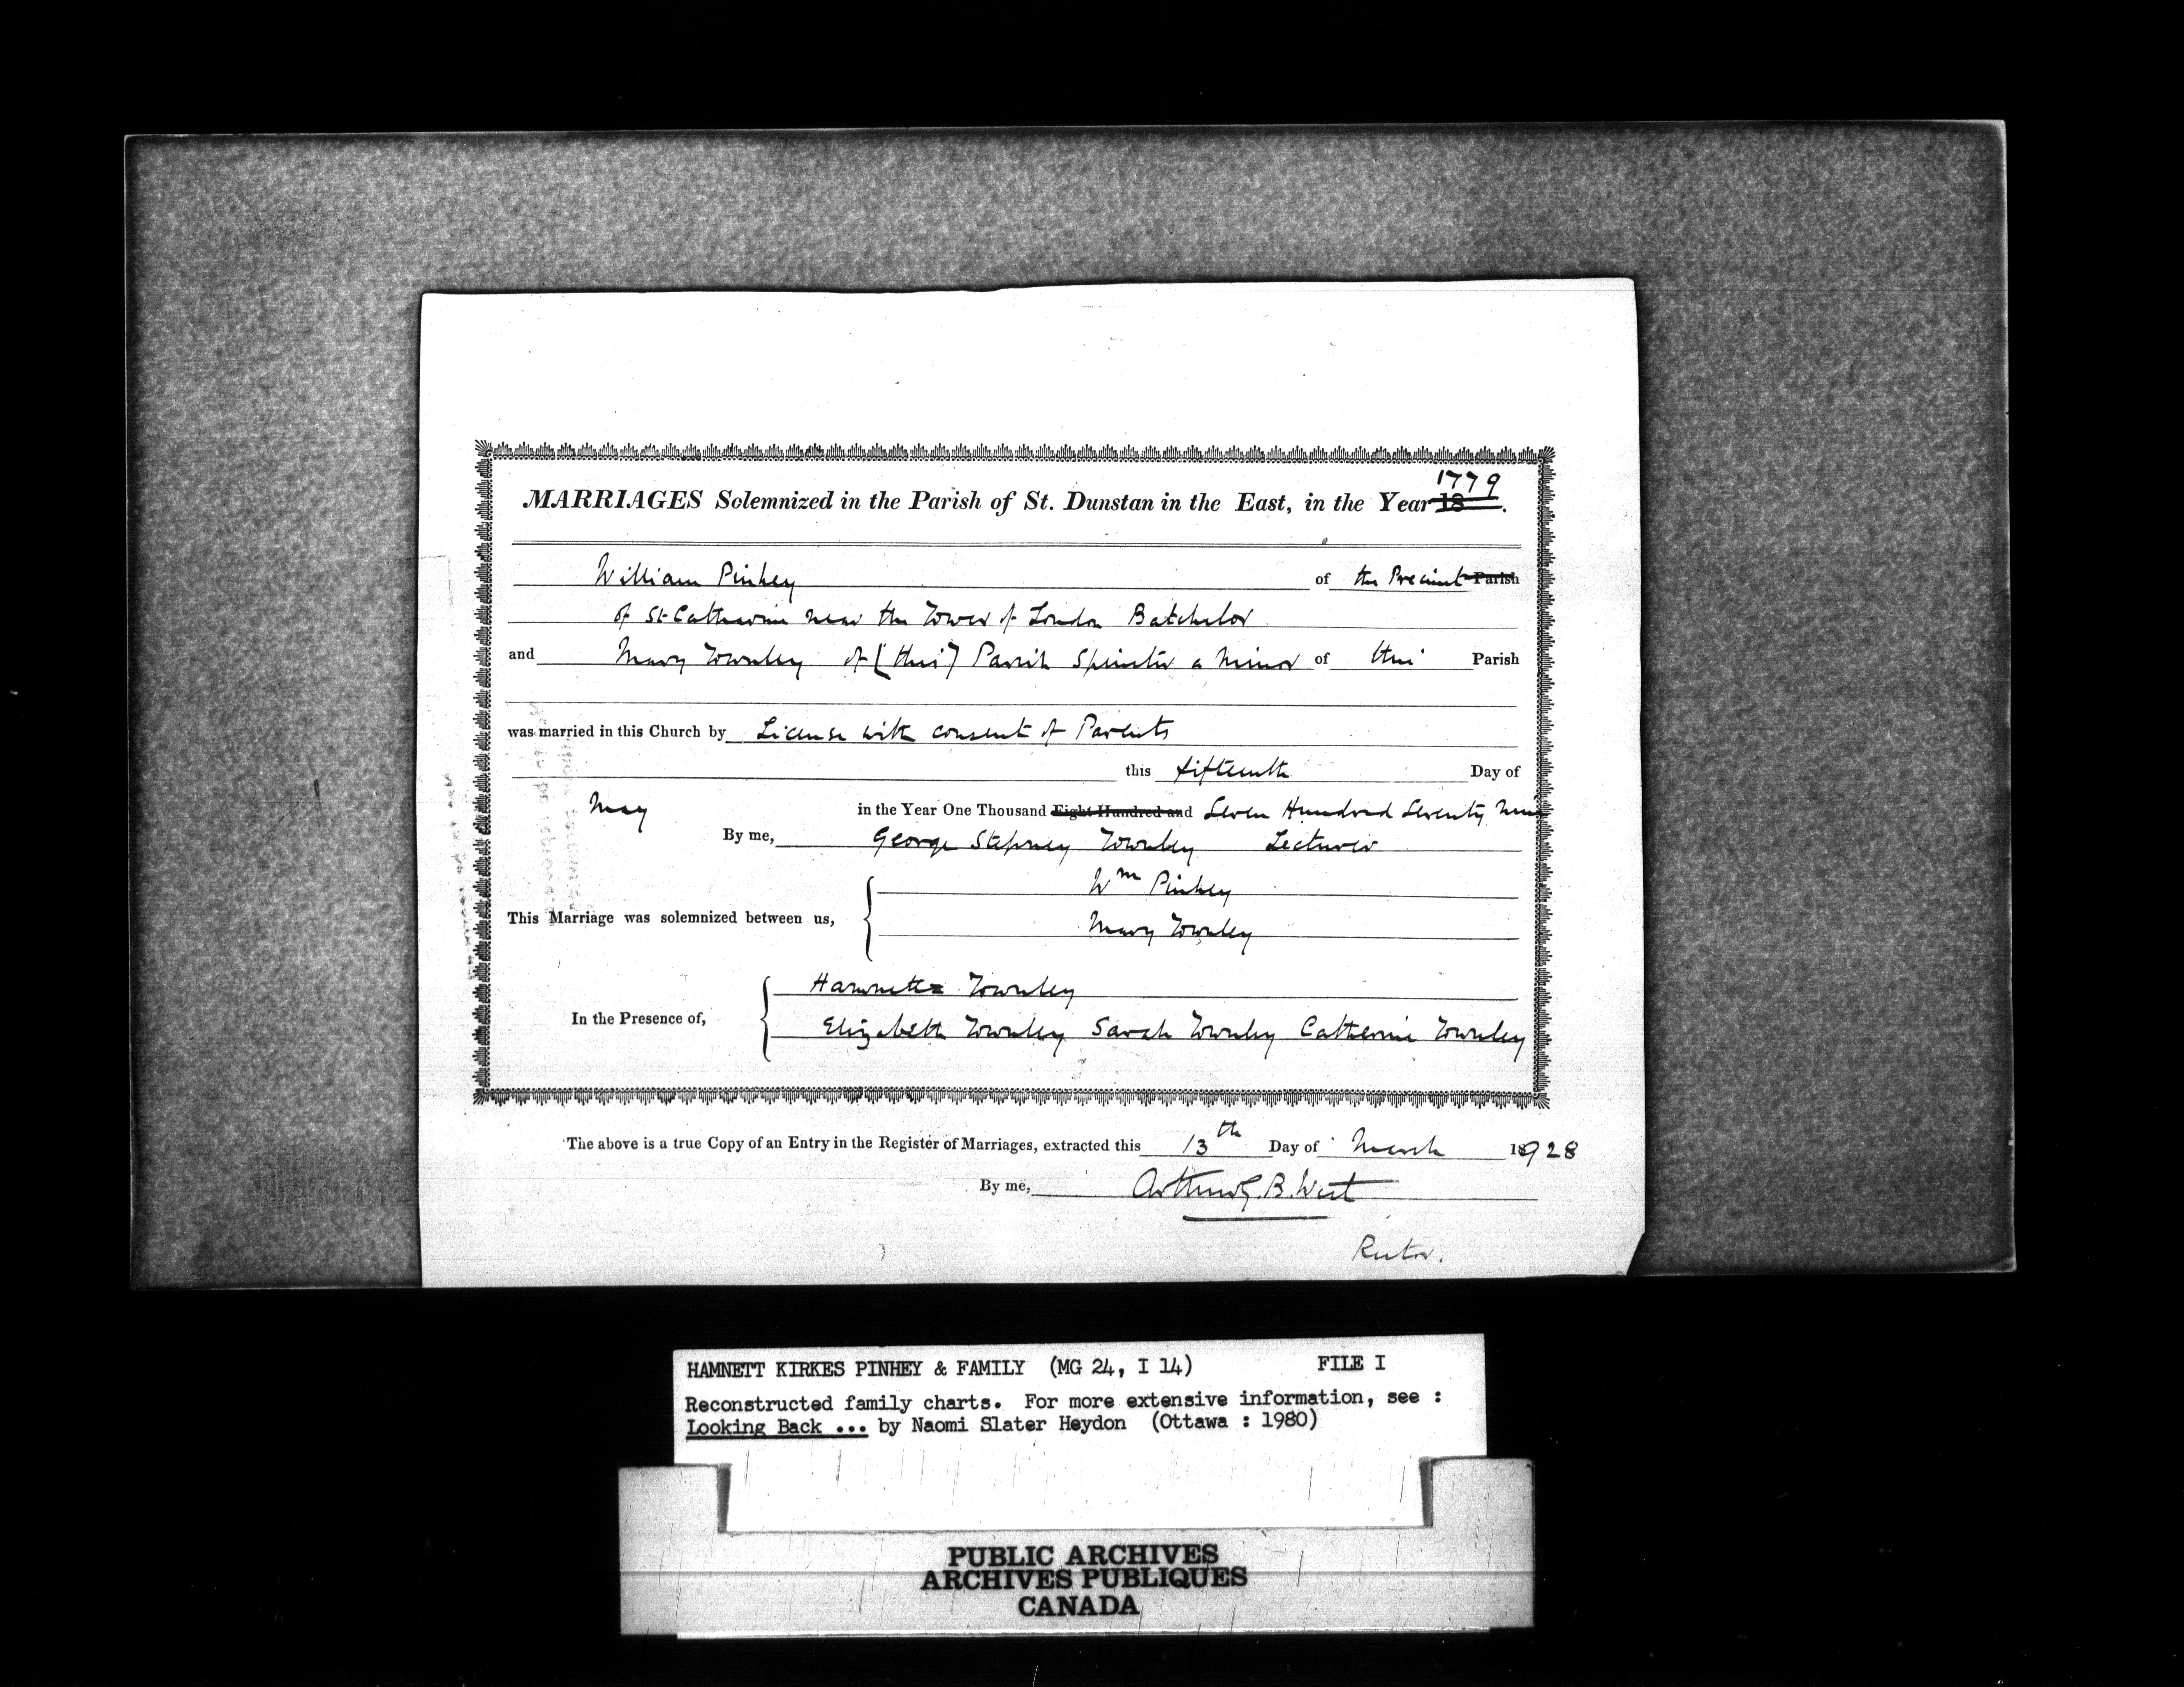 1779
MARRIAGES Solemnized in the Parish of St. Dunstan in the East, in the Year 18 .
William Pinhey of the Precinct Parish
of St Catherine near the Tower of London Batchelor
and Mary Townley of (this) Parish Spinster a minor of this Parish
was married in this Church by License with consent of Parents
this fifteenth Day of
May in the Year One Thousand Eight Hundred and Seven Hundred Seventy Nine
By me, George Stepney Townley Lecturer
Wm Pinhey
This Marriage was solemnized between us,
Mary Townley
Hamnett Townley
In the Presence of,
Elizabeth Townley Sarah Townley Catherine Townley
The above is a true Copy of an Entry in the Register of Marriages, extracted this 13th Day of March 1928
By me, Arthur G. B. West
Rector.
HAMNETT KIRKES PINHEY & FAMILY (MG 24, I 14) FILE I
Reconstructed family charts. For more extensive information, see :
Looking Back ... by Naomi Slater Heydon (Ottawa : 1980)
PUBLIC ARCHIVES
ARCHIVES PUBLIQUES
CANADA